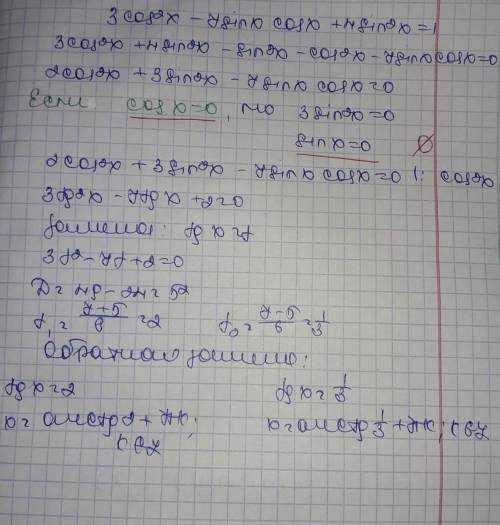 3cos²x - 7sinx cosx + 4sin²x = 1
3cos²x + 4sin²x - sin²x - cos²x - 7sinx cosx = 0
2cos²x + 3sin²x - 7sinx cosx = 0
Если cosx = 0, то 3sin²x = 0
sinx = 0 ∅
2cos²x + 3sin²x - 7sinx cosx = 0 |: cos²x
3tg²x - 7tgx + 2 = 0
Замена: tgx = t
3t² - 7t + 2 = 0
D = 49 - 24 = 5²
t₁ = (7+5)/6 = 2 t₂ = (7-5)/6 = 1/3
Обратная замена:
tgx = 2 tgx = 1/3
x = arctg2 + πk; x = arctg 1/3 + πk; k∈Z
k∈Z